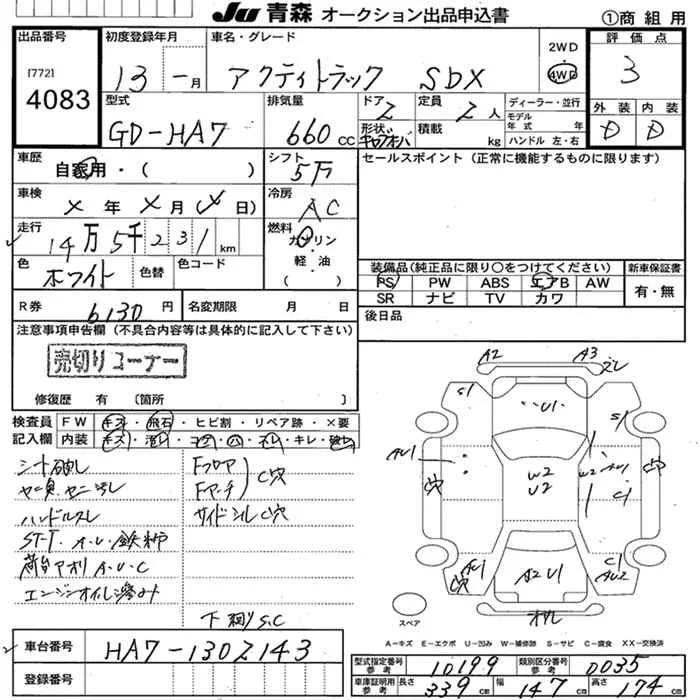 JU 青森 オークション出品申込書
①商 組 用
出品番号
[772]
4083
初度登録年月
13 - 月
車名・グレード
アクティトラック SDX
2WD
4WD
評価点
3
型式
GD-HA7
排気量
660 cc
ドア
2
形状
定員
2 人
積載
kg
ディーラー・並行
モデル
年 式 年
ハンドル 左・右
外装
D
内装
D
車歴
自家用・( )
シフト
5万
セールスポイント (正常に機能するものに限ります)
車検
× 年 × 月 (× 日)
冷房
AC
走行
14万 5千 2 3 1 km
燃料
ガソリン
・
軽・油
( )
色
ホワイト
色替
色コード
装備品(純正品に限り○をつけてください)
PS PW ABS エアB AW
SR ナビ TV カワ
新車保証書
有・無
R券
6130 円
名変期限 月 日
後日品
注意事項申告欄 (不具合内容等は具体的に記入して下さい)
売切りコーナー
修復歴 有 〔箇所 〕
検査員
記入欄
FW キズ・飛石・ヒビ割・リペア跡・×要
内装 キズ・汚れ・コゲ・穴・スレ・キレ・破れ
シート破れ
ハンドルスレ
ST-T・A・U・鉄粉
荷台アオリ A・U・C
エンジンオイル滲み
Fフロア
C穴
サイドシル C穴
下廻り S.C
A2
A3
ズレ
S1
U1
S1
AU1
C穴
W2
U2
W2
AU1
C1
C穴
AU1
C穴
A2 U1
C1
AU2
スペア
A-キズ E-エクボ U-凹み W-補修跡 S-サビ C-腐食 XX-交換済
車台番号
HA7-1302143
登録番号
型式指定番号
参考
10199
類別区分番号
参考
0035
車庫証明用
参考
長さ 339 cm
幅 147 cm
高さ 174 cm